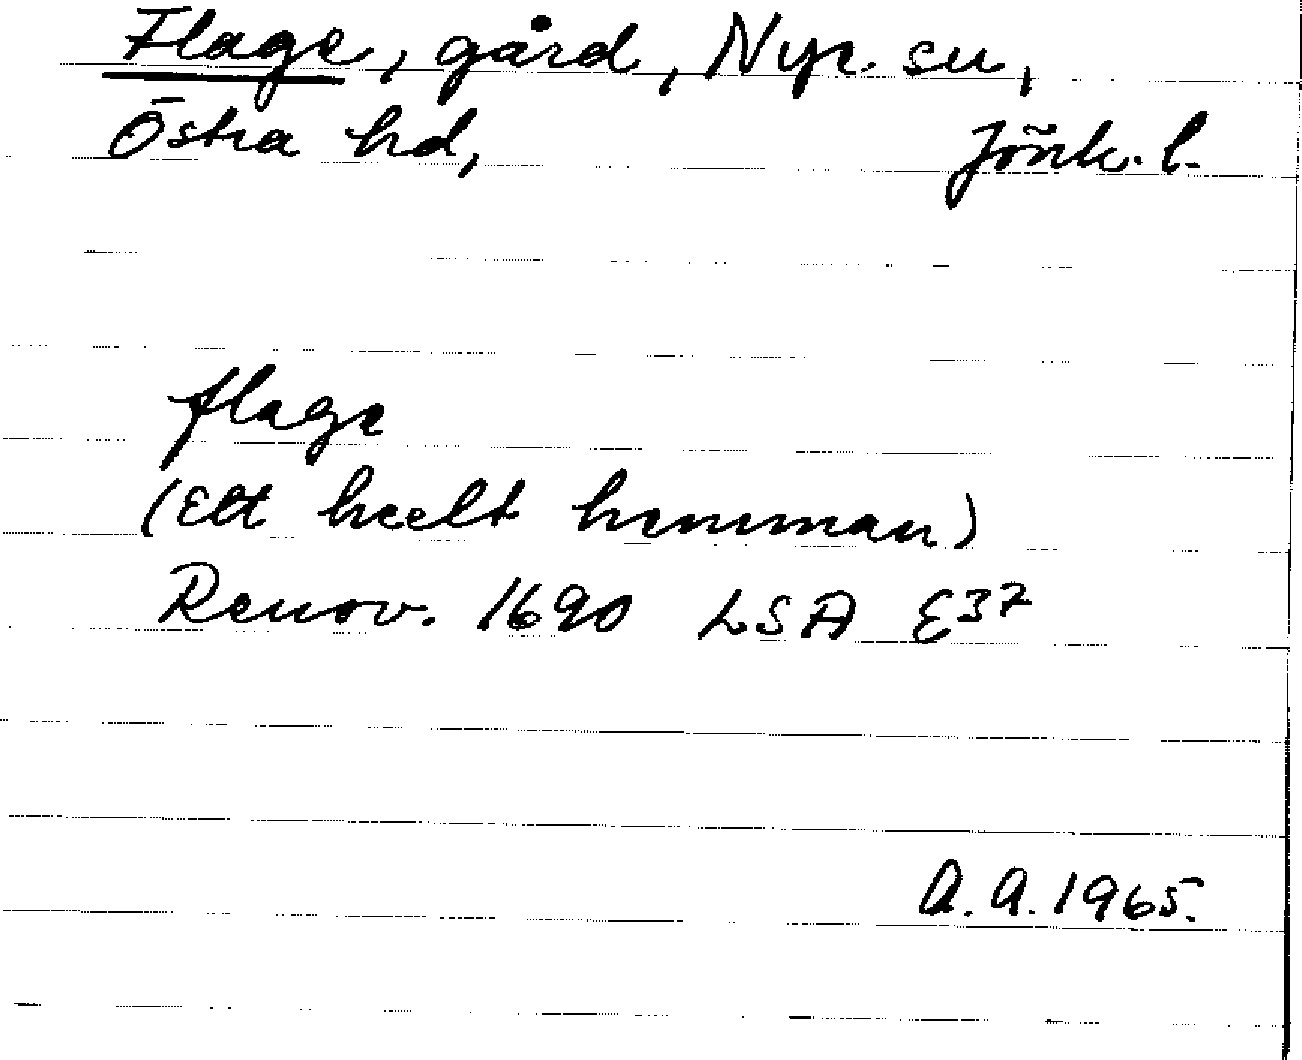 Flage, gård, Nye. sn,
Östra hd, Jönk. l.
flage
(Ett heelt hemman)
Renov. 1690 LSA E37
A.A. 1965.